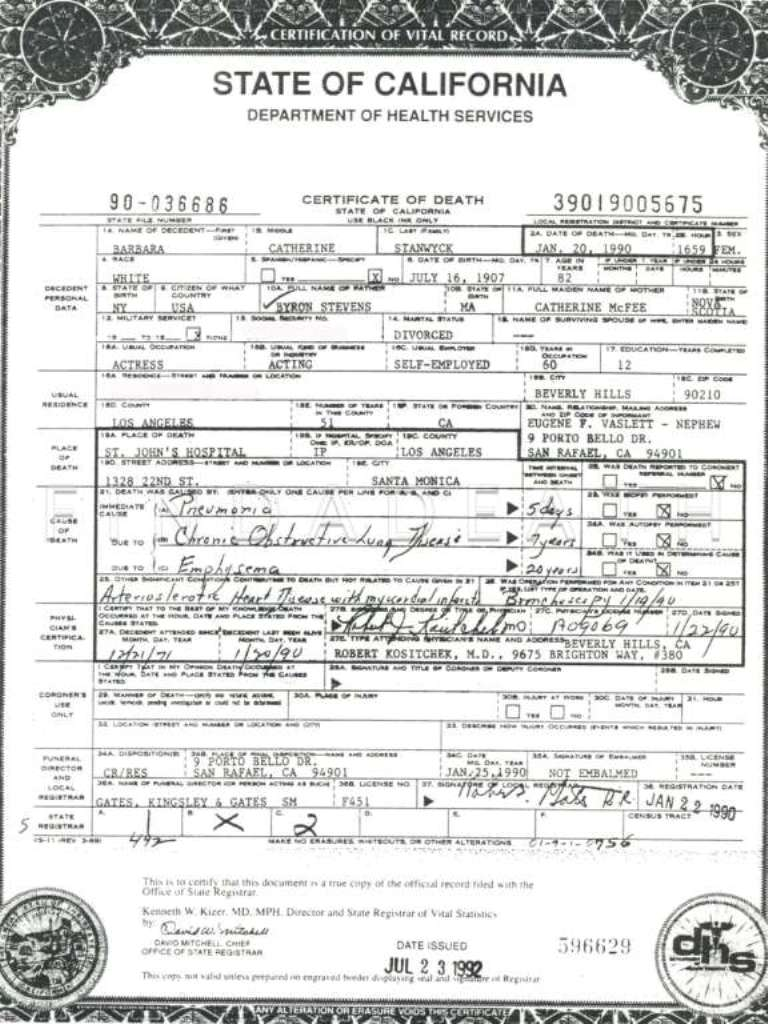 CERTIFICATION OF VITAL RECORD
STATE OF CALIFORNIA
DEPARTMENT OF HEALTH SERVICES
90-036686 CERTIFICATE OF DEATH 39019005675
STATE FILE NUMBER STATE OF CALIFORNIA LOCAL REGISTRATION DISTRICT AND CERTIFICATE NUMBER
USE BLACK INK ONLY
1A. NAME OF DECEDENT—FIRST (GIVEN) 1B. MIDDLE 1C. LAST (FAMILY) 2A. DATE OF DEATH—MO, DAY, YR 2B. HOUR 3. SEX
BARBARA CATHERINE STANWYCK JAN. 20, 1990 1659 FEM.
4. RACE 5. SPANISH/HISPANIC—SPECIFY 6. DATE OF BIRTH—MO, DAY, YR 7. AGE IN YEARS IF UNDER 1 YEAR MONTHS DAYS IF UNDER 24 HOURS HOURS MINUTES
WHITE YES X NO JULY 16, 1907 82
DECEDENT PERSONAL DATA
8. STATE OF BIRTH 9. CITIZEN OF WHAT COUNTRY 10A. FULL NAME OF FATHER 10B. STATE OF BIRTH 11A. FULL MAIDEN NAME OF MOTHER 11B. STATE OF BIRTH
NY USA BYRON STEVENS MA CATHERINE McFEE NOVA SCOTIA
12. MILITARY SERVICE? 13. SOCIAL SECURITY NO. 14. MARITAL STATUS 15. NAME OF SURVIVING SPOUSE (IF WIFE, ENTER MAIDEN NAME)
19 TO 19 X NONE DIVORCED ----
16A. USUAL OCCUPATION 16B. USUAL KIND OF BUSINESS OR INDUSTRY 16C. USUAL EMPLOYER 16D. YEARS IN OCCUPATION 17. EDUCATION—YEARS COMPLETED
ACTRESS ACTING SELF-EMPLOYED 60 12
18A. RESIDENCE—STREET AND NUMBER OR LOCATION 18B. CITY 18C. ZIP CODE
BEVERLY HILLS 90210
USUAL RESIDENCE
18D. COUNTY 18E. NUMBER OF YEARS IN THIS COUNTY 18F. STATE OR FOREIGN COUNTRY 20. NAME, RELATIONSHIP, MAILING ADDRESS AND ZIP CODE OF INFORMANT
LOS ANGELES 51 CA EUGENE F. VASLETT - NEPHEW
9 PORTO BELLO DR.
SAN RAFAEL, CA 94901
PLACE OF DEATH
19A. PLACE OF DEATH 19B. IF HOSPITAL, SPECIFY ONE: IP, ER/OP, DOA 19C. COUNTY
ST. JOHN'S HOSPITAL IP LOS ANGELES
19D. STREET ADDRESS—STREET AND NUMBER OR LOCATION 19E. CITY TIME INTERVAL BETWEEN ONSET AND DEATH 22. WAS DEATH REPORTED TO CORONER? REFERRAL NUMBER
1328 22ND ST. SANTA MONICA YES X NO
CAUSE OF DEATH
21. DEATH WAS CAUSED BY: (ENTER ONLY ONE CAUSE PER LINE FOR A, B, AND C) 23. WAS BIOPSY PERFORMED?
IMMEDIATE CAUSE (A) Pneumonia 5 days YES X NO
24A. WAS AUTOPSY PERFORMED?
DUE TO (B) Chronic Obstructive Lung Disease 7 years YES X NO
24B. WAS IT USED IN DETERMINING CAUSE OF DEATH?
DUE TO (C) Emphysema 20 years YES X NO
25. OTHER SIGNIFICANT CONDITIONS CONTRIBUTING TO DEATH BUT NOT RELATED TO CAUSE GIVEN IN 21 26. WAS OPERATION PERFORMED FOR ANY CONDITION IN ITEM 21 OR 25? IF YES, LIST TYPE OF OPERATION AND DATE.
Arteriosclerotic Heart Disease with myocardial infarcts Bronchoscopy 1/19/90
PHYSICIAN'S CERTIFICATION
I CERTIFY THAT TO THE BEST OF MY KNOWLEDGE DEATH OCCURRED AT THE HOUR, DATE AND PLACE STATED FROM THE CAUSES STATED.
27B. SIGNATURE AND DEGREE OR TITLE OF PHYSICIAN 27C. PHYSICIAN'S LICENSE NUMBER 27D. DATE SIGNED
Robert J Kositchek MD A09069 1/22/90
27A. DECEDENT ATTENDED SINCE MONTH, DAY, YEAR DECEDENT LAST SEEN ALIVE MONTH, DAY, YEAR 27E. TYPE ATTENDING PHYSICIAN'S NAME AND ADDRESS BEVERLY HILLS, CA
12/21/71 1/20/90 ROBERT KOSITCHEK, M.D., 9675 BRIGHTON WAY, #380
CORONER'S USE ONLY
I CERTIFY THAT IN MY OPINION DEATH OCCURRED AT THE HOUR, DATE AND PLACE STATED FROM THE CAUSES STATED.
28A. SIGNATURE AND TITLE OF CORONER OR DEPUTY CORONER 28B. DATE SIGNED
29. MANNER OF DEATH 30A. PLACE OF INJURY 30B. INJURY AT WORK YES NO 30C. DATE OF INJURY MONTH, DAY, YEAR 31. HOUR
32. LOCATION (STREET AND NUMBER OR LOCATION AND CITY) 33. DESCRIBE HOW INJURY OCCURRED (EVENTS WHICH RESULTED IN INJURY)
FUNERAL DIRECTOR AND LOCAL REGISTRAR
34A. DISPOSITION(S) 34B. PLACE OF FINAL DISPOSITION—NAME AND ADDRESS 34C. DATE MO, DAY, YEAR 35A. SIGNATURE OF EMBALMER 35B. LICENSE NUMBER
CR/RES 9 PORTO BELLO DR. SAN RAFAEL, CA 94901 JAN/25,1990 NOT EMBALMED ---
36A. NAME OF FUNERAL DIRECTOR (OR PERSON ACTING AS SUCH) 36B. LICENSE NO. 37. SIGNATURE OF LOCAL REGISTRAR 38. REGISTRATION DATE
GATES, KINGSLEY & GATES SM F451 JAN 22 1990
STATE REGISTRAR
A. B. C. D. E. F. CENSUS TRACT
5 1 X 2
VS-11 (REV. 3-89) 492 MAKE NO ERASURES, WHITEOUTS, OR OTHER ALTERATIONS 01-9-1-0756
This is to certify that this document is a true copy of the official record filed with the
Office of State Registrar.
Kenneth W. Kizer, MD, MPH, Director and State Registrar of Vital Statistics
by: David W. Mitchell
DAVID MITCHELL, CHIEF
OFFICE OF STATE REGISTRAR
DATE ISSUED
JUL 23 1992
596629
This copy not valid unless prepared on engraved border displaying seal and signature of Registrar
dhs
ANY ALTERATION OR ERASURE VOIDS THIS CERTIFICATE